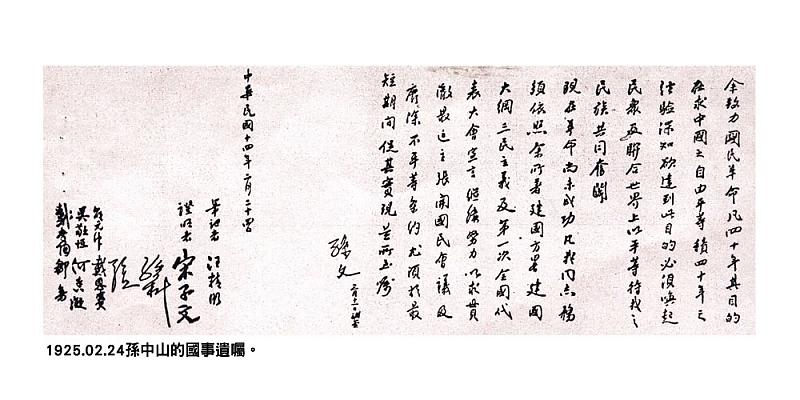 余致力國民革命凡四十年其目的
在求中國之自由平等積四十年之
經驗深知欲達到此目的必須喚起
民衆及聯合世界上以平等待我之
民族共同奮鬭
現在革命尚未成功凡我同志務
須依照余所著建國方畧建國
大綱三民主義及第一次全國代
表大會宣言繼續努力以求貫
澈最近主張開國民會議及
廢除不平等條約尤須於最
短期間促其實現是所至囑
孫文
中華民國十四年二月二十四日
筆記者 汪精衛
證明者 宋子文
孫科
戴恩賽
吳敬恆 何香凝
鄒魯
1925.02.24孫中山的國事遺囑。